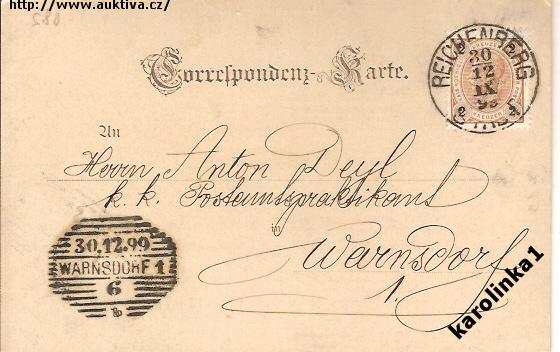 http://www.auktiva.cz/
Correspondenz-Karte.
REICHENBERG
30
12
IX
99
KREUZER
An
Herrn Anton Deyl
k. k. Postamtspraktikant
in
Warnsdorf
1.
30.12.99
WARNSDORF 1
6
b
karolinka1